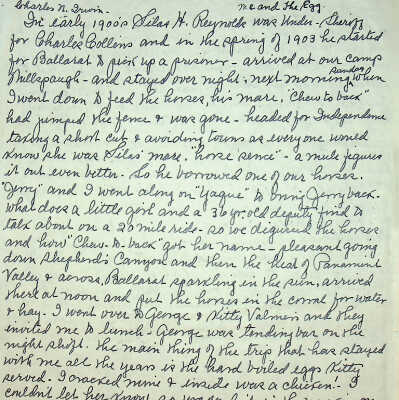 Charles N. Irwin. Me and The Egg.
In early 1900's Silas H. Reynolds was Under-Sheriff
for Charles Collins and in the spring of 1903 he started
for Ballarat to pick up a prisoner - arrived at our camp
Millspaugh - and stayed over night. next morning Sunday, when
I went down to feed the horses, his mare, "Chew to back"
had jimped the fence & was gone - headed for Independence
taking a short cut & avoiding towns as everyone would
know she was Silas' mare. "horse sence" - a mule figures
it out even better. So he borrowed one of our horses.
"Jerry" and I went along on "Yaque" to bring Jerry back.
what does a little girl and a 36 yr old deputy find to
talk about on a 20 mile ride - so we digured the horses
and how "Chew-to-back" got her name - pleasant going
down Shepherd's Canyon and then the heat of Panamint
Valley & across, Ballarat sparkling in the sun, arrived
there at noon and put the horses in the corral for water
& hay - I went over to George & Kitty Valmein and they
invited me to lunch - George was tending bar on the
night shift. the main thing of the trip that has stayed
with me all the years is the hard boiled eggs Kitty
served - I cracked mine & inside was a chicken! - I
couldn't let her know so